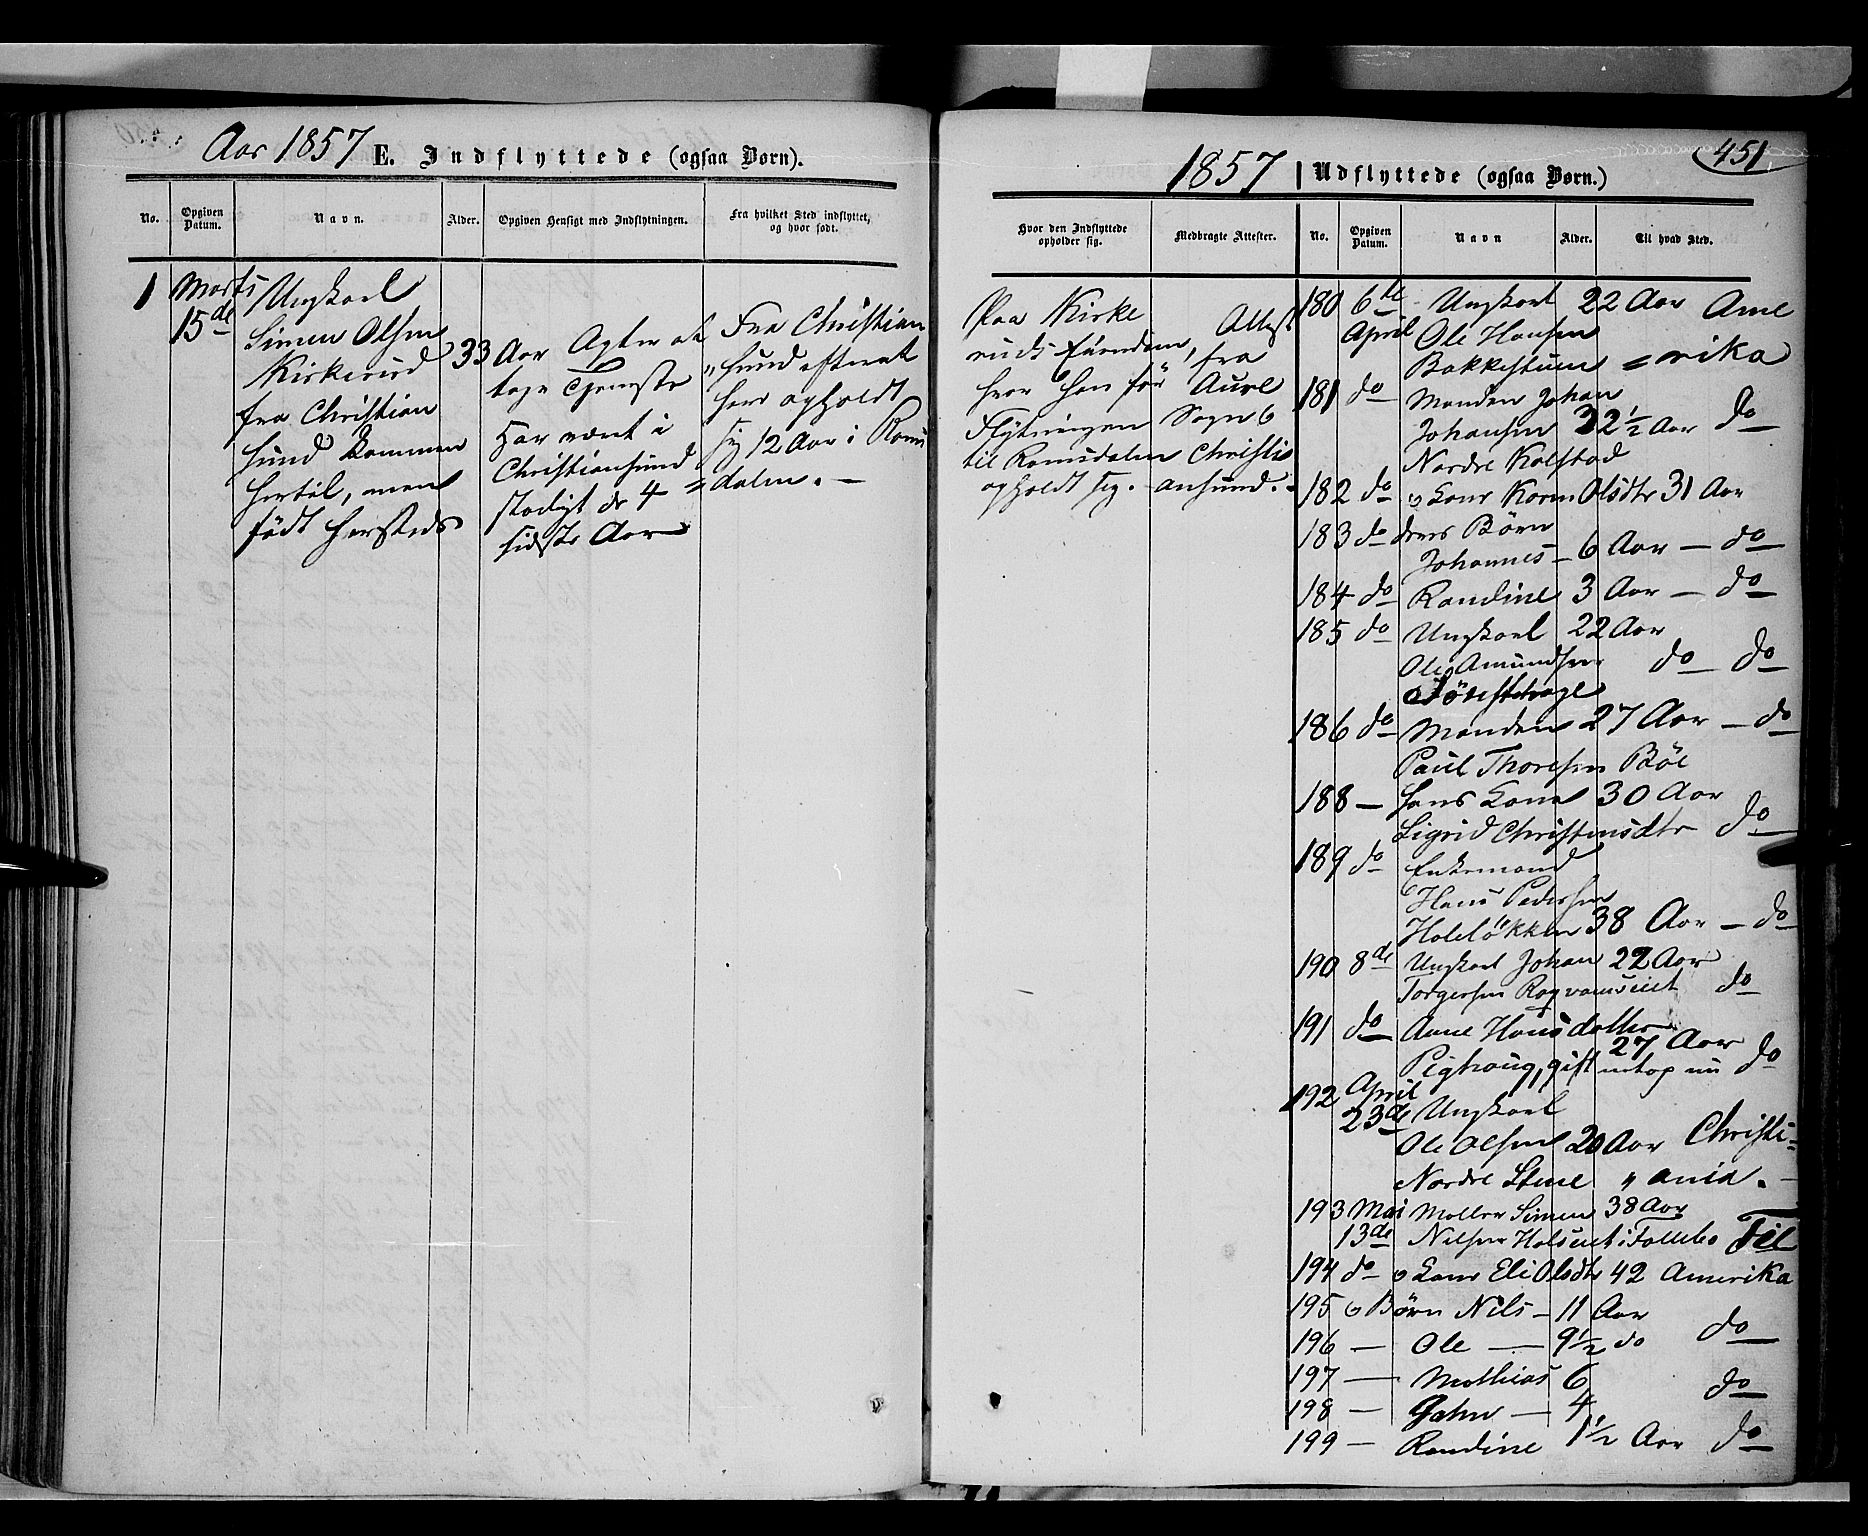 Aar 1857 E. Indflyttede (ogsaa Børn).
No.
Opgiven Datum.
Navn.
Alder.
Opgiven Hensigt med Indflytningen.
Fra hvilket Sted indflyttet, og hvor født.
1
Marts
15de
Ungkarl
Simen Olsen
Kirkerud
fra Christian
sund kommen
hertil, men
født hersteds
33 Aar
Agter at
tage Tjeneste
Har været i
Christiansund
stadigt de 4
sidste Aar
Fra Christian
"sund
har opholdt
sig 12 Aar i Roms
=dalen. —
1857 Udflyttede (ogsaa Børn.)
451
Hvor den Indflyttede opholder sig.
Medbragte Attester.
No.
Opgiven Datum.
Navn
Alder.
Til hvad Sted.
Paa Kirke
ruds Eiendom,
hvor han før
Flytningen
til Romsdalen
opholdt sig.
Attest
fra
Aure
Sogn
Christi
ansund. -
180 6te April Ungkarl 22 Aar Ame
Ole Hansen
Bakkestuen =rika
181 do Manden Johan
Johansen 32½ Aar do
Nordre Kolstad
182 do o Kone Karen Olsdtr 31 Aar
183 do deres Børn
Johannes — 6 Aar — do
184 do Randine 3 Aar — do
185 do Ungkarl 22 Aar
Ole Amundsen do do
186 do Manden 27 Aar — do
Paul Thoresen Böe
188 — hans Kone 30 Aar
Sigrid Christensdtr do
189 do Enkemand
Hans Pedersen
Holeløkken 38 Aar — do
190 8de Ungkarl Johan 22 Aar
Torgersen do
191 do Anne Hansdatter
27 Aar
Pighaug, gift netop nu do
192 April
23de Ungkarl
Ole Olsen 20 Aar Christi=
Nordre Stene "ania. —
193 Mai Møller Simen 38 Aar
13de Nilsen i Follebo Til
194 do o Kone Eli Olsdtr 42 Amerika
195 o Børn Nils — 11 Aar
do
196 — Ole — 9½ do
197 — Mathias 6
do
198 — Johan — 4
199 — Randine 1½ Aar do